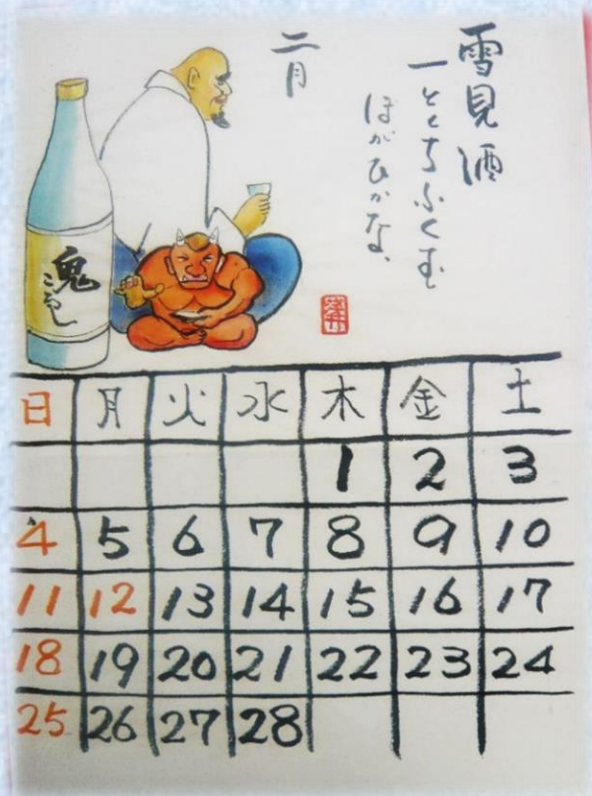 雪見酒
一とくちふくむ
ほがひかな、
二月
鬼
ころし
日 月 火 水 木 金 土
1 2 3
4 5 6 7 8 9 10
11 12 13 14 15 16 17
18 19 20 21 22 23 24
25 26 27 28